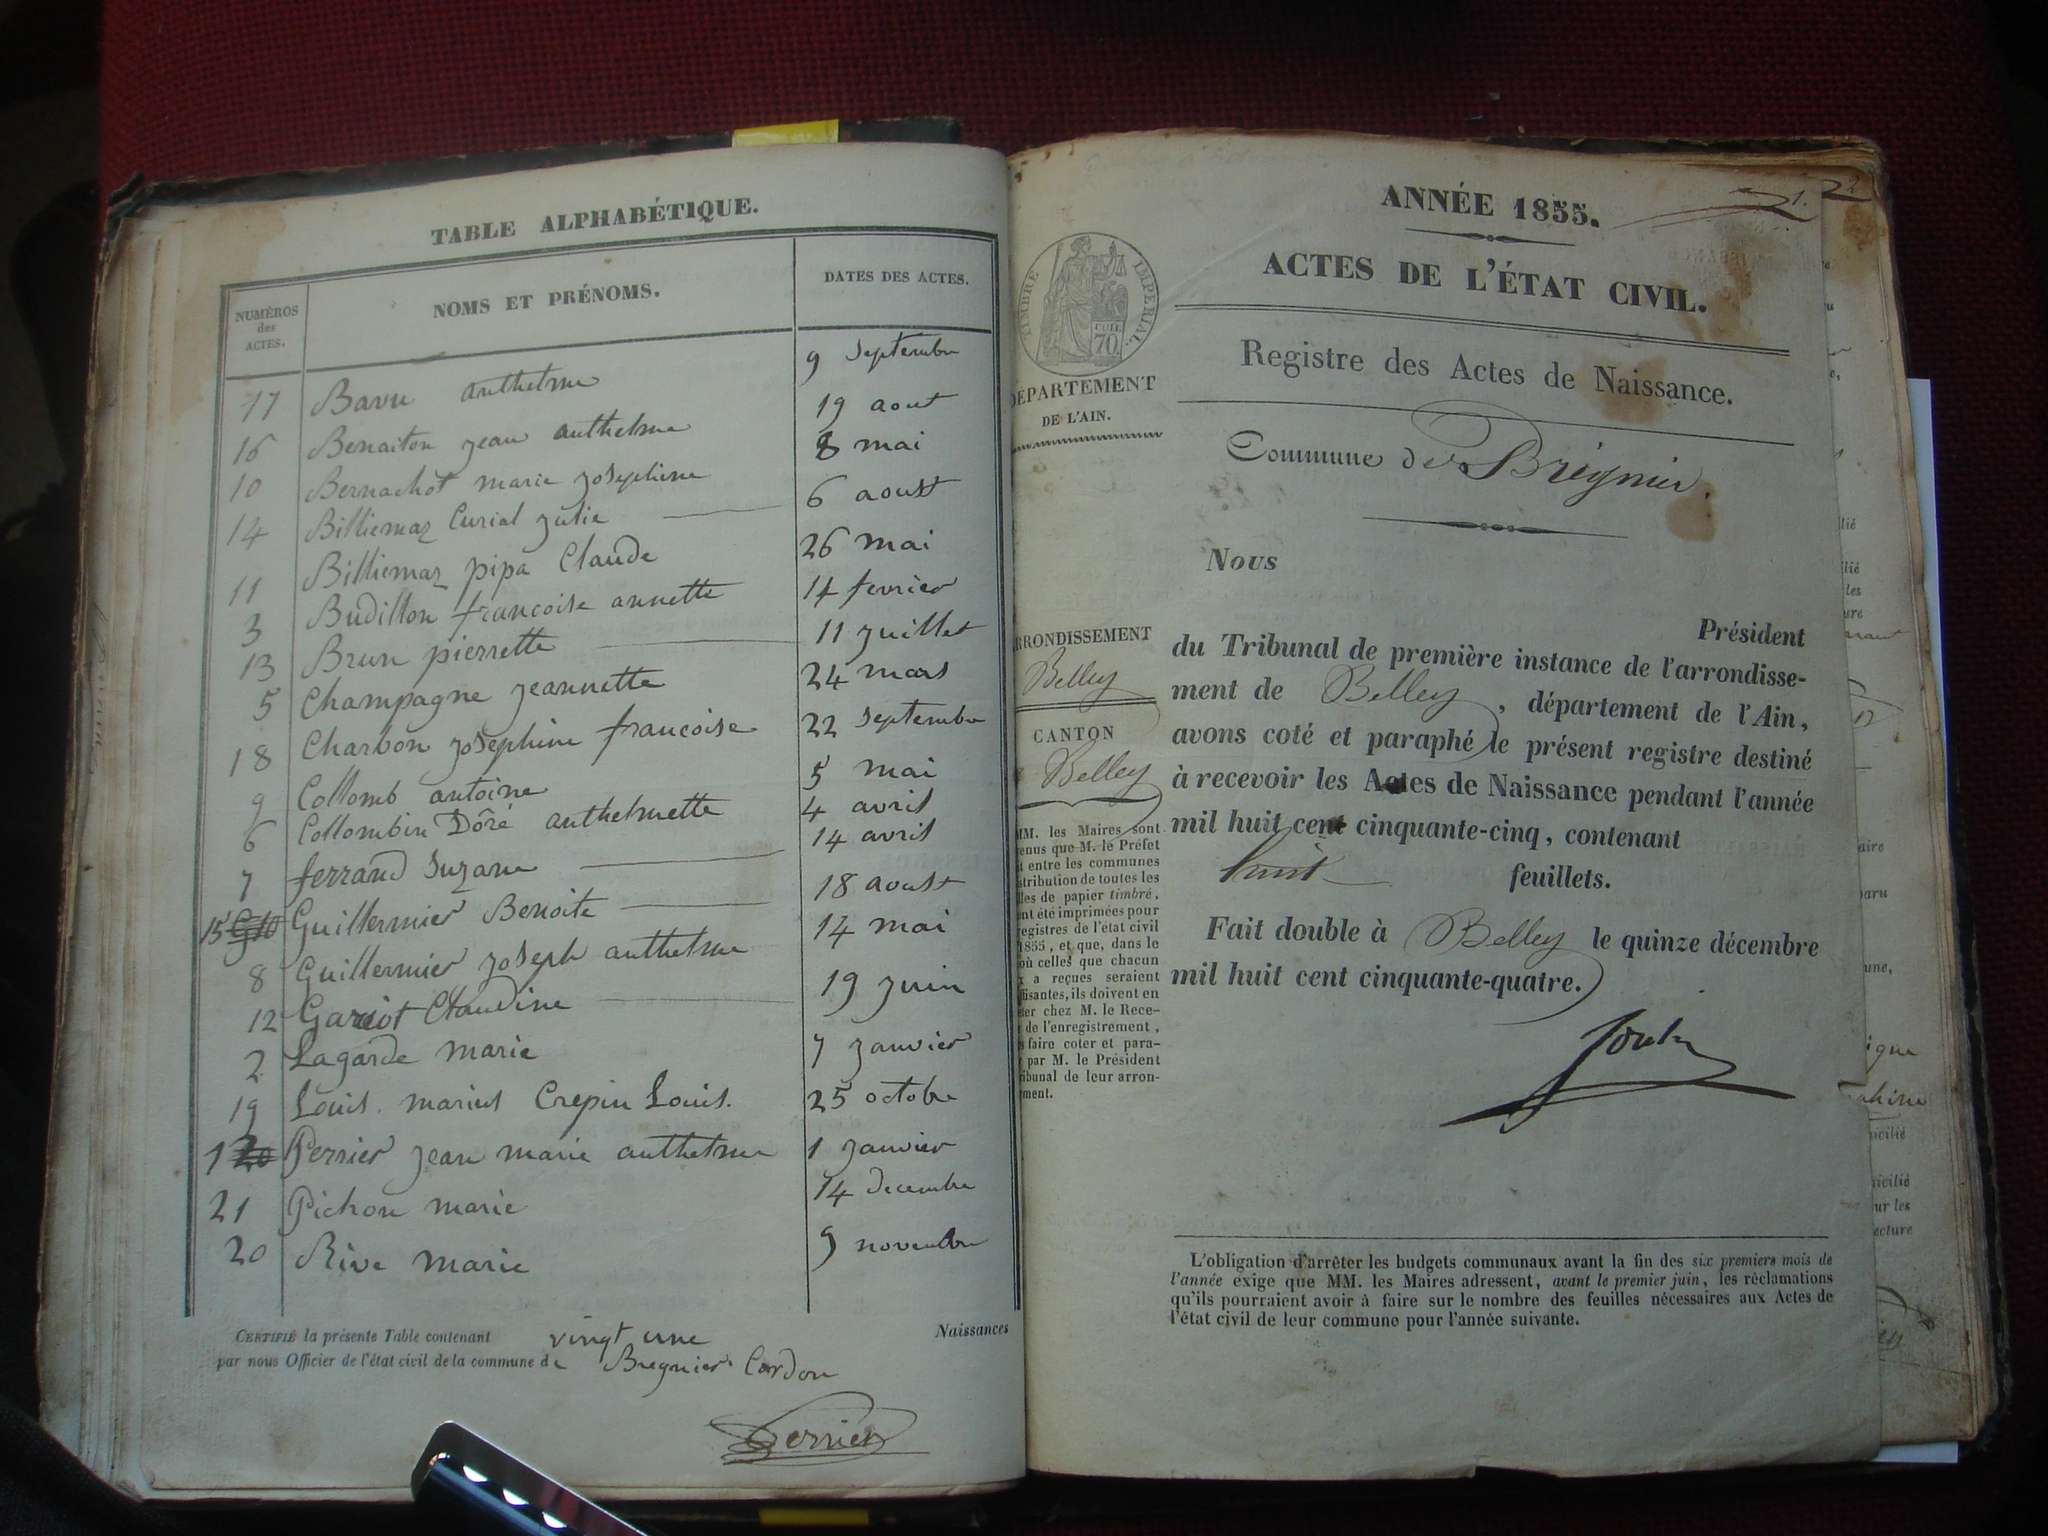 TABLE ALPHABÉTIQUE.
NUMÉROS des ACTES.
NOMS ET PRÉNOMS.
DATES DES ACTES.
17 Bavu anthelme 9 Septembre
16 Benaiton jean anthelme 19 aout
10 Bernachot marie josephine 8 mai
14 Billiemaz Curial julie 6 aoust
11 Billiemaz pipa Claude 26 mai
3 Budillon francoise annette 14 fevrier
13 Brun pierrette 11 juillet
5 Champagne jeannette 24 mars
18 Charbon josephine francoise 22 septembre
9 Collomb antoine 5 mai
6 Collombin Doré anthelmette 4 avril
7 ferrand Suzane 14 avril
15 Guillermier Benoite 18 aoust
8 Guillermier joseph anthelme 14 mai
12 Gariot Claudine 19 juin
2 Lagarde marie 7 janvier
19 Louis. marius Crepin Louis. 25 octobre
1 Perrier jean marie anthelme 1 janvier
21 Pichon marie 14 decembre
20 Rive marie 9 novembre
CERTIFIÉ la présente Table contenant vingt une Naissances
par nous Officier de l'état civil de la commune de Bregnier Cordon
Perrier
1. 2
ANNÉE 1855.
ACTES DE L'ÉTAT CIVIL.
TIMBRE IMPERIAL.
70
Registre des Actes de Naissance.
DÉPARTEMENT
DE L'AIN.
Commune de Brégnier.
Nous
Président
ARRONDISSEMENT
Belley
CANTON
Belley
du Tribunal de première instance de l'arrondisse-
ment de Belley, département de l'Ain,
avons coté et paraphé le présent registre destiné
à recevoir les Actes de Naissance pendant l'année
mil huit cent cinquante-cinq, contenant
huit feuillets.
Fait double à Belley le quinze décembre
mil huit cent cinquante-quatre.
MM. les Maires sont
enus que M. le Préfet
t entre les communes
stribution de toutes les
lles de papier timbré,
nt été imprimées pour
registres de l'état civil
1855, et que, dans le
où celles que chacun
x a reçues seraient
fisantes, ils doivent en
ter chez M. le Rece-
r de l'enregistrement,
s faire coter et para-
par M. le Président
ribunal de leur arron-
ment.
L'obligation d'arrêter les budgets communaux avant la fin des six premiers mois de
l'année exige que MM. les Maires adressent, avant le premier juin, les réclamations
qu'ils pourraient avoir à faire sur le nombre des feuilles nécessaires aux Actes de
l'état civil de leur commune pour l'année suivante.